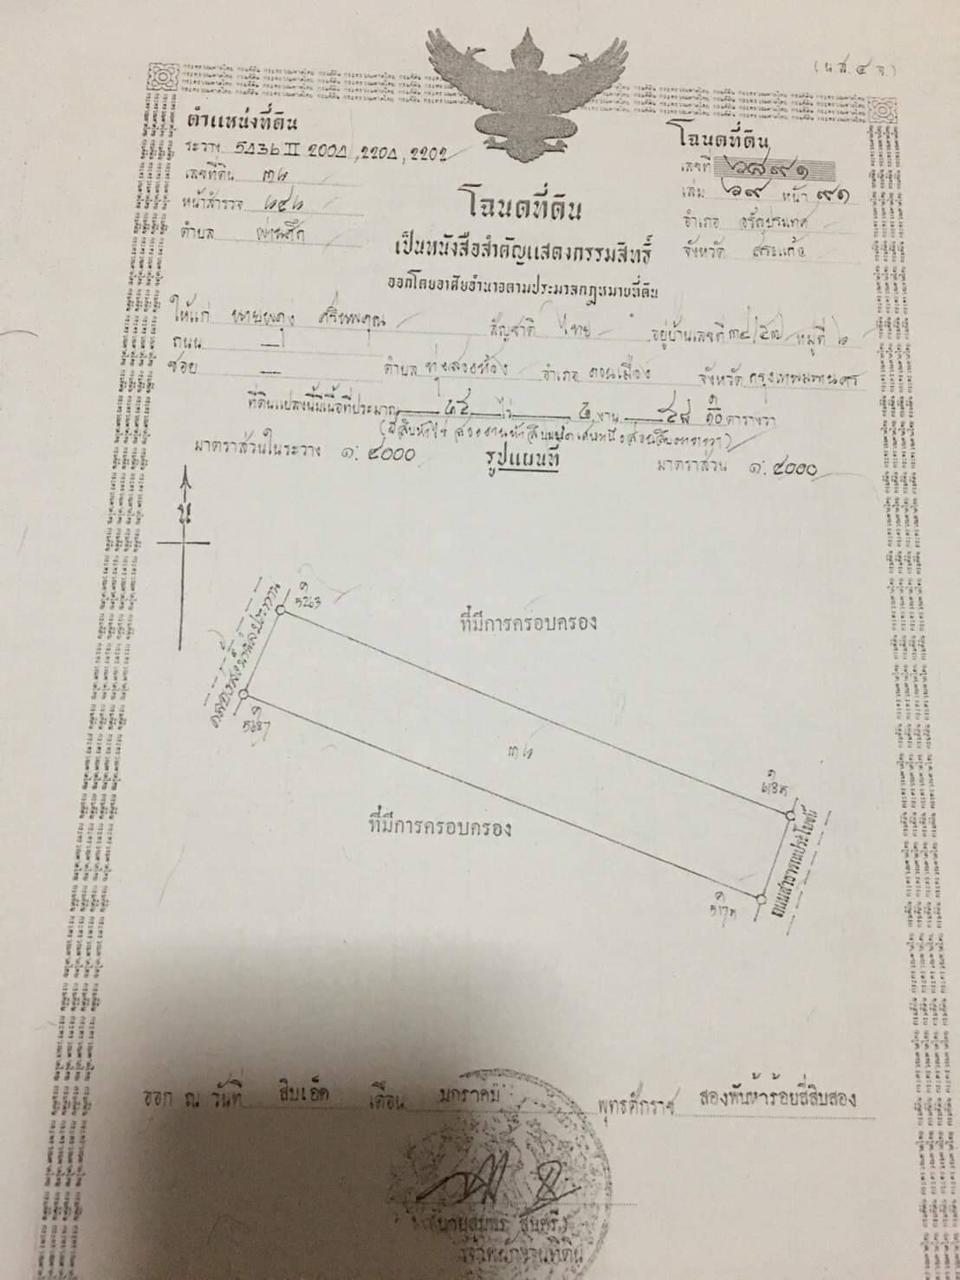 (น.ส. ๔ จ.)
ตำแหน่งที่ดิน
ระวาง 5436 II 2004, 2204, 2202
เลขที่ดิน ๓๒
หน้าสำรวจ ๒๔๒
ตำบล ผ่านศึก
โฉนดที่ดิน
เลขที่ ๖๘๙๑
เล่ม ๖๙ หน้า ๙๑
อำเภอ อรัญประเทศ
จังหวัด สระแก้ว
โฉนดที่ดิน
เป็นหนังสือสำคัญแสดงกรรมสิทธิ์
ออกโดยอาศัยอำนาจตามประมวลกฎหมายที่ดิน
ให้แก่ สัญชาติ ไทย อยู่บ้านเลขที่ ๓๔/๕๗ หมู่ที่ ๒
ถนน —
ซอย — ตำบล ทุ่งสองห้อง อำเภอ ดอนเมือง จังหวัด กรุงเทพมหานคร
ที่ดินแปลงนี้มีเนื้อที่ประมาณ ๒๕ ไร่ ๒ งาน ๕๘ ตารางวา
มาตราส่วนในระวาง ๑: ๔000 รูปแผนที่ มาตราส่วน ๑: ๔000
น
คลองส่งน้ำชลประทาน
5263
ที่มีการครอบครอง
5687
๓๒
ที่มีการครอบครอง
ถนนสาธารณประโยชน์
ออก ณ วันที่ สิบเอ็ด เดือน มกราคม พุทธศักราช สองพันห้าร้อยสี่สิบสอง
เจ้าพนักงานที่ดิน